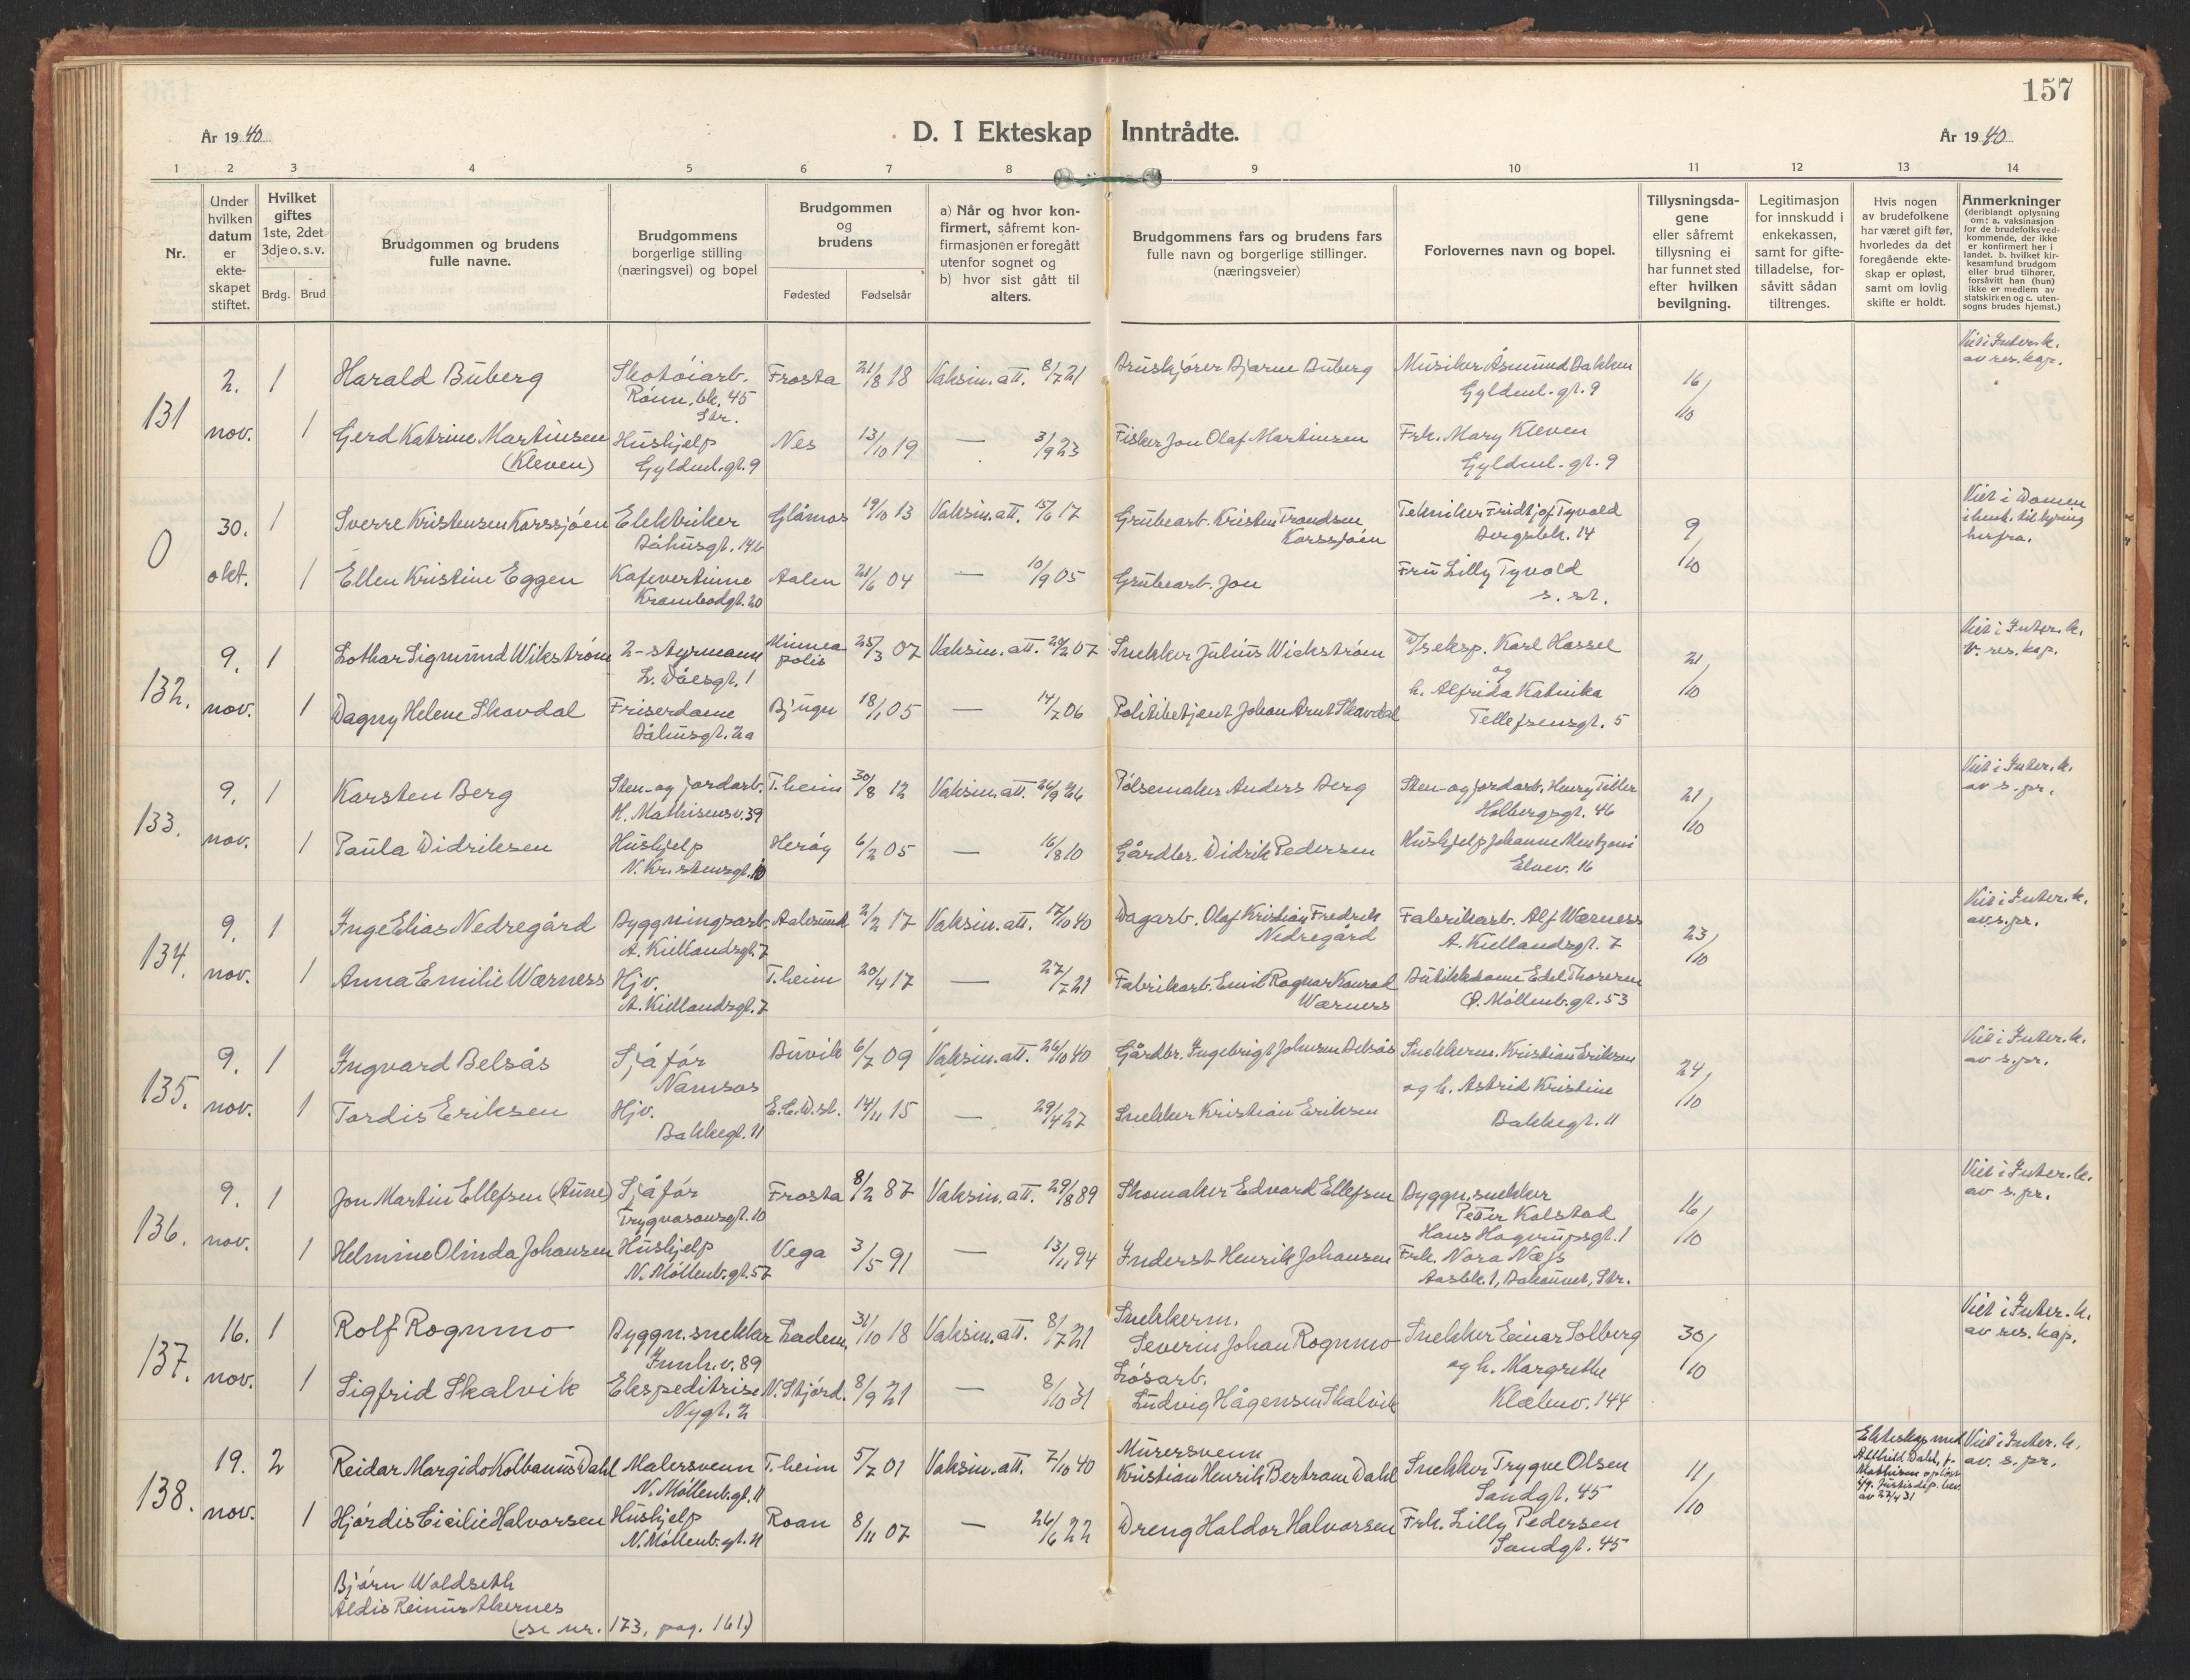 157
År 1940
D. I Ekteskap Inntrådte.
År 1940
1 2 3 4 5 6 7 8 9 10 11 12 13 14
Nr.
Under hvilken datum er ekte-skapet stiftet.
Hvilket giftes 1ste, 2det 3dje o. s. v.
Brdg. Brud
Brudgommen og brudens fulle navne.
Brudgommens borgerlige stilling (næringsvei) og bopel
Brudgommen og brudens
Fødested Fødselsår
a) Når og hvor kon-firmert, såfremt kon-firmasjonen er foregått utenfor sognet og b) hvor sist gått til alters.
Brudgommens fars og brudens fars fulle navn og borgerlige stillinger. (næringsveier)
Forlovernes navn og bopel.
Tillysningsda-gene eller såfremt tillysning ei har funnet sted efter hvilken bevilgning.
Legitimasjon for innskudd i enkekassen, samt for gifte-tilladelse, for-såvitt sådan tiltrenges.
Hvis nogen av brudefolkene har været gift før, hvorledes da det foregående ekte-skap er opløst, samt om lovlig skifte er holdt.
Anmerkninger (deriblandt oplysning om: a. vaksinasjon for de brudefolks ved-kommende, der ikke er konfirmert her i landet. b. hvilket kir-kesamfund brudgom eller brud tilhører, forsåvitt han (hun) ikke er medlem av statskirken og c. uten-sogns brudes hjemst.)
131 2. nov. 1 Harald Buberg Skotøiarb. Rønn.bk. 45 Str. Frosta 21/8 18 Vaksin.att. 8/7 21 Bruskjører Bjarne Buberg Musiker Åsmund Bakken Gyldenl.gt. 9 16/10 Viet i Inter.k. av res.kap.
1 Gerd Katrine Martinsen (Kleven) Hushjelp Gyldenl.gt. 9 Nes 13/10 19 — 3/9 23 Fisker Jon Olaf Martinsen Frk. Mary Kleven Gyldenl.gt. 9
0 30. okt. 1 Sverre Kristensen Korssjøen Elektriker Båhusgt. 14b Glåmos 19/10 13 Vaksin.att. 15/6 17 Grubearb. Kristen Trondsen Korssjøen Tekniker Fridtjof Tyvold Bergsbk. 14 9/10 Viet i Domen ihenh. til lysing herfra.
1 Ellen Kristine Eggen Kafevertinne Krambodgt. 20 Aalen 21/6 04 — 10/9 05 Grubearb. Jon Fru Lilly Tyvold s. st.
132. 9. nov. 1 Lothar Sigmund Wikstrøm 2-styrmann L. Dåesgt. 1 Minneapolis 25/3 07 Vaksin.att. 20/2 07 Snekker Julius Wickstrøm D/S eksp. Karl Hassel og 21/10 Viet i Inter.k. V. res.kap.
1 Dagny Helene Skavdal Friserdame Båhusgt. 2a Bjugn 18/1 05 — 14/7 06 Politibetjent Johan Arnt Skavdal h. Alfrida Katinka Tellefsensgt. 5
133. 9. nov. 1 Karsten Berg Sten- og jordarb. H. Mathisensv. 39 T.heim 30/8 12 Vaksin.att. 26/9 26 Pølsemaker Anders Berg Sten- og jordarb. Henry Tiller Holbergsgt. 46 21/10 Viet i Inter.k. av s. pr.
1 Paula Didriksen Hushjelp N. Kristensgt. 10 Herøy 6/2 05 — 16/8 10 Gårdbr. Didrik Pedersen Hushjelp Johanne Mentzoni Elvev. 16
134. 9. nov. 1 Inge Elias Nedregård Byggningsarb. A. Kiellandsgt. 7 Aalesund 2/2 17 Vaksin.att. 17/10 40 Dagarb. Olaf Kristian Fredrik Nedregård Fabrikarb. Alf Wærness A. Kiellandsgt. 7 23/10 Viet i Inter.k. av s.pr.
1 Anna Emilie Wærness Hjv. A. Kiellandsgt. 7 T.heim 20/4 17 — 27/7 21 Fabrikarb. Emil Ragnar Konrad Wærness Butikkdame Edel Thoresen Ø. Møllenb.gt. 53
135. 9. nov. 1 Ingvard Belsås Sjåfør Namsos Buvik 6/7 09 Vaksin.att. 26/10 40 Gårdbr. Ingebrigt Johnsen Belsås Snekkerm. Kristian Eriksen 24/10 Viet i Inter.k. av s.pr.
1 Tordis Eriksen Hjv. Bakkegt. 11 E.C.D.st. 14/11 15 — 29/4 27 Snekker Kristian Eriksen og h. Astrid Kristine Bakkegt. 11
136. 9. nov. 1 Jon Martin Ellefsen (Aune) Sjåfør Trygvasonsgt. 10 Frosta 8/2 87 Vaksin.att. 29/8 89 Skomaker Edvard Ellefsen Byggn.snekker Petter Kolstad Hans Hagerupsgt. 1 16/10 Viet i Inter.k. av s. pr.
1 Helmine Olinda Johansen Hushjelp N. Møllenb.gt. 57 Vega 3/5 91 — 13/11 94 Inderst Henrik Johansen Frk. Nora Næss Aasbk. 1, Bakaunet, Str.
137. 16. nov. 1 Rolf Rognmo Byggn.snekker Innh.v. 89 Ladem. 31/10 18 Vaksin.att. 8/7 21 Snekkerm. Severin Johan Rognmo Snekker Einar Solberg 30/10 Viet i Inter.k. av res.kap.
1 Sigfrid Skalvik Ekspeditrise Nygt. 2 N. Stjørd. 8/9 21 — 8/10 31 Løsarb. Ludvig Hågensen Skalvik og h. Margrethe Klæbuv. 144
138. 19. nov. 2 Reidar Margido Kolbanus Dahl Malersvenn N. Møllenb.gt. 11 T.heim 5/7 01 Vaksin.att. 7/10 40 Murersvenn Kristian Henrik Bertram Dahl Snekker Trygve Olsen Sandgt. 45 11/10 Ekteskap med Dahl, f. Mathisen opløst Justisdep. bev. av 27/4 31 Viet i Inter.k. av. s.pr.
1 Hjørdis Cicilie Halvorsen Hushjelp N. Møllenb.gt. 11 Roan 8/11 07 — 26/6 22 Dreng Haldor Halvorsen Frk. Lilly Pedersen Sandgt. 45
Bjørn Woldseth
Aldis Reinus Akernes
(se nr. 173, pag. 161.)